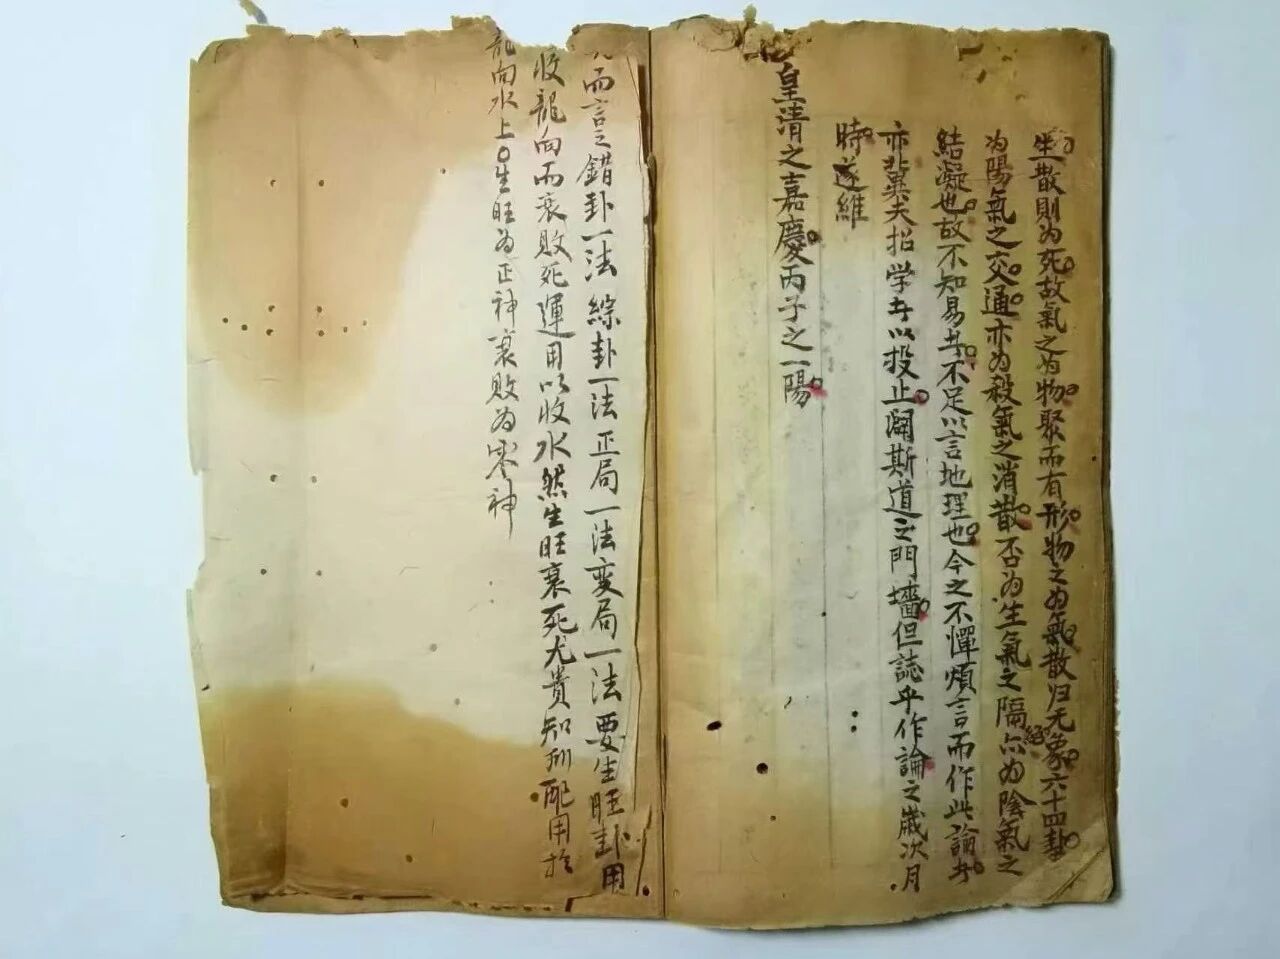 生散則为死故氣之为物聚而有形物之为氣散归无象六十四卦
为陽氣之交通亦为殺氣之消散否为生氣之隔絕亦为陰氣之
結凝也故不知易者不足以言地理也今之不憚煩言而作此論者
亦冀夫招学者以投止闢斯道之門墻但誌乎作論之歲次月
時遂維
皇清之嘉慶丙子之一陽
而言之錯卦一法綜卦一法正局一法变局一法要生旺卦用
收龍向而衰敗死運用以收水然生旺衰死尤貴知所配用於
龍向水上生旺为正神衰敗为零神